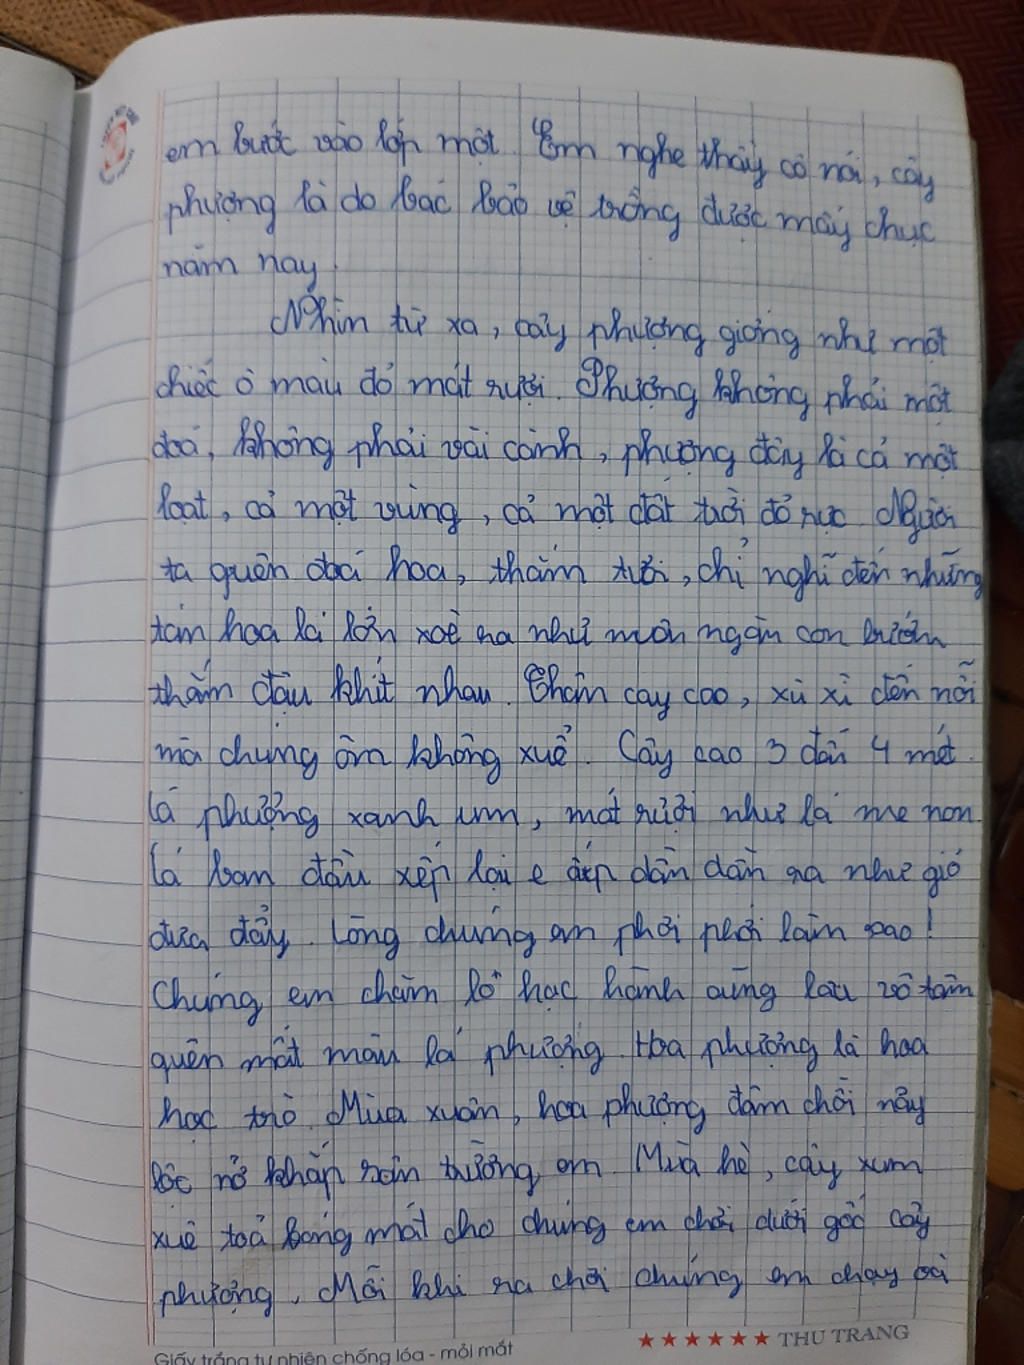 em bước vào lớp một. Em nghe thầy cô nói, cây
phượng là do bác bảo vệ trồng được mấy chục
năm nay.
Nhìn từ xa, cây phượng giống như một
chiếc ô màu đỏ mát rượi. Phượng không phải một
đoá, không phải vài cành, phượng đây là cả một
loạt, cả một vùng, cả một đất trời đỏ rực. Người
ta quên đoá hoa, thắm tươi, chỉ nghĩ đến những
tán hoa lá lớn xoè ra như muôn ngàn con bướm
thắm đậu khít nhau. Thân cây cao, xù xì đến nỗi
mà chúng ôm không xuể. Cây cao 3 đến 4 mét.
Lá phượng xanh um, mát rượi như lá me non.
Lá ban đầu xếp lại e ấp dần dần ra như gió
đưa đẩy. Lòng chúng em phơi phới làm sao!
Chúng em chăm lo học hành cũng lâu vô tâm
quên mất màu lá phượng. Hoa phượng là hoa
học trò. Mùa xuân, hoa phượng đâm chồi nảy
lộc nở khắp sân trường em. Mùa hè, cây xum
xuê toả bóng mát cho chúng em chơi dưới gốc cây
phượng. Mỗi khi ra chơi chúng em chạy oà
★★★★★★ THU TRANG
Giấy trắng tự nhiên chống lóa - mỏi mắt